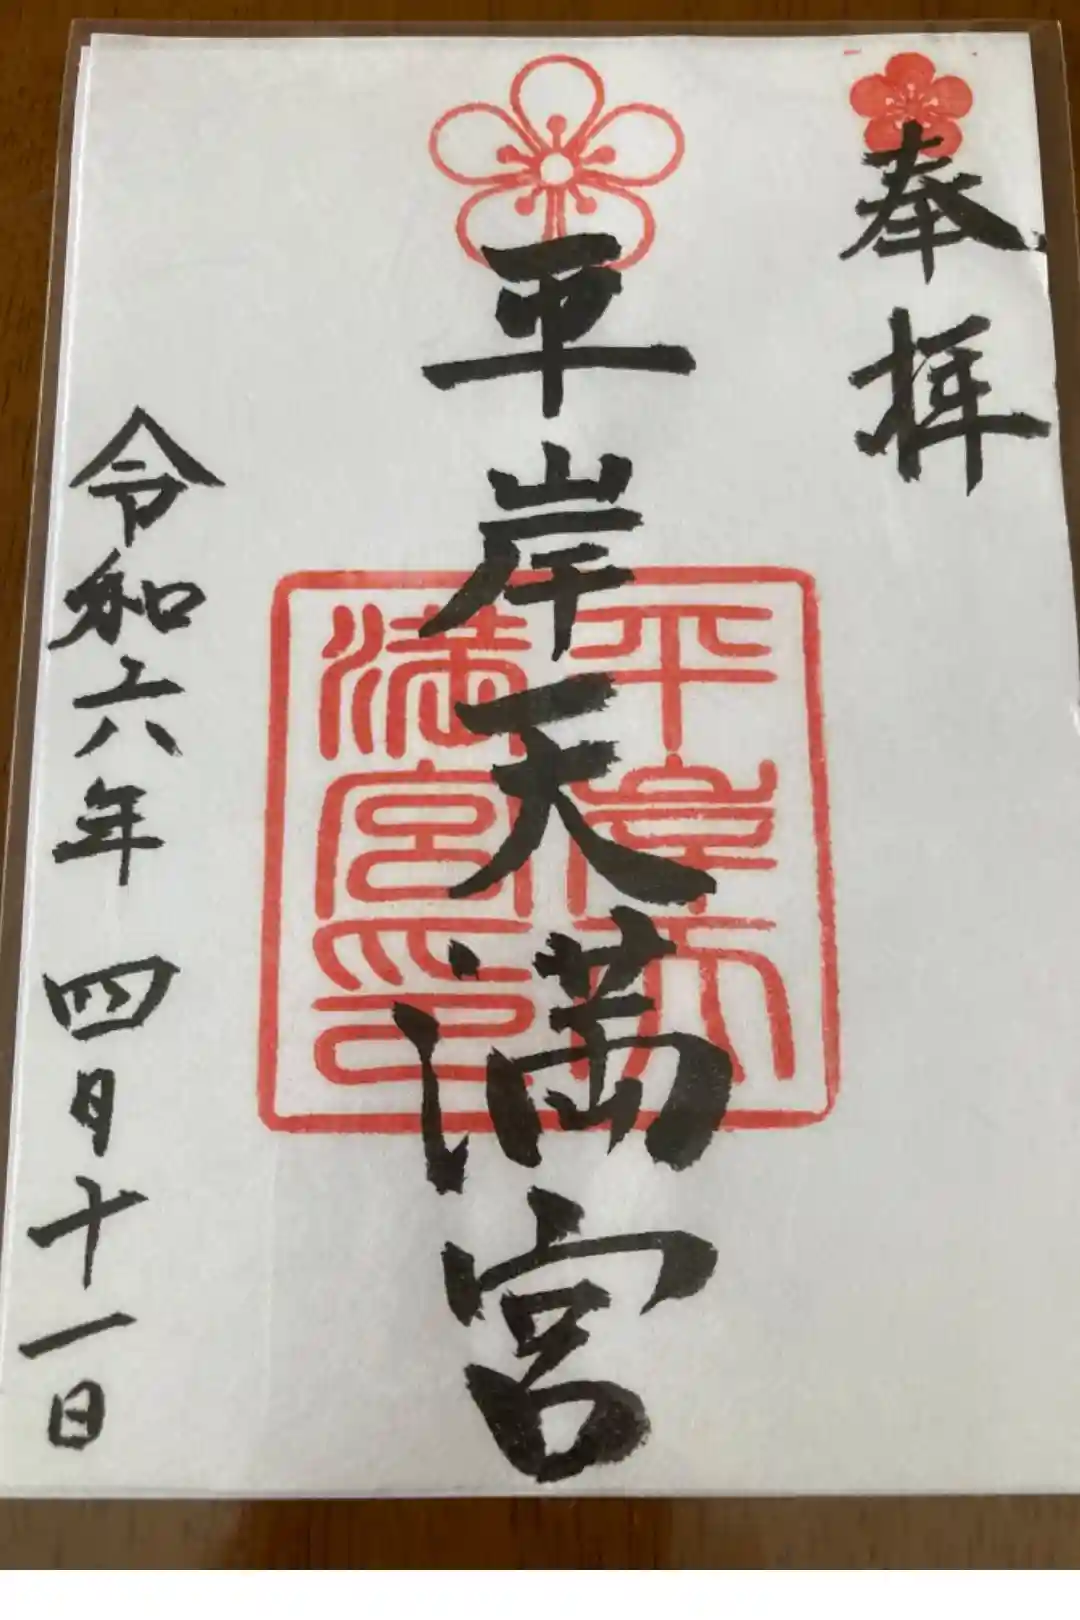 奉拝
平岸天満宮
平岸天
満宮印
令和六年四月十一日